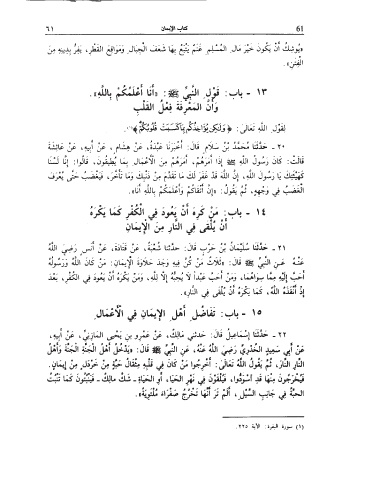 61 كتاب الإيمان ٦١
«يُوشِكُ أَنْ يَكُونَ خَيْرَ مَالِ المُسْلِمِ غَنَمٌ يَتْبَعُ بِهَا شَعَفَ الجِبَالِ وَمَوَاقِعَ القَطْرِ، يَفِرُّ بِدِينِهِ مِنَ
الفِتَنِ».
١٣ - باب: قَوْلِ النَّبِيِّ ﷺ: «أَنَا أَعْلَمُكُمْ بِاللَّهِ».
وَأَنَّ المَعْرِفَةَ فِعْلُ القَلْبِ
لِقَوْلِ اللَّهِ تَعَالَى: ﴿وَلَكِن يُؤَاخِذُكُم بِمَا كَسَبَتْ قُلُوبُكُمْ﴾(١).
٢٠ - حَدَّثَنَا مُحَمَّدُ بْنُ سَلَامٍ قَالَ: أَخْبَرَنَا عَبْدَةُ، عَنْ هِشَامٍ، عَنْ أَبِيهِ، عَنْ عَائِشَةَ
قَالَتْ: كَانَ رَسُولُ اللَّهِ ﷺ إِذَا أَمَرَهُمْ، أَمَرَهُمْ مِنَ الأَعْمَالِ بِمَا يُطِيقُونَ، قَالُوا: إِنَّا لَسْنَا
كَهَيْئَتِكَ يَا رَسُولَ اللَّهِ، إِنَّ اللَّهَ قَدْ غَفَرَ لَكَ مَا تَقَدَّمَ مِنْ ذَنْبِكَ وَمَا تَأَخَّرَ، فَيَغْضَبُ حَتَّى يُعْرَفَ
الْغَضَبُ فِي وَجْهِهِ، ثُمَّ يَقُولُ: «إِنَّ أَتْقَاكُمْ وَأَعْلَمَكُمْ بِاللَّهِ أَنَا».
١٤ - باب: مَنْ كَرِهَ أَنْ يَعُودَ فِي الْكُفْرِ كَمَا يَكْرَهُ
أَنْ يُلْقَى فِي النَّارِ مِنَ الإِيمَانِ
٢١ - حَدَّثَنَا سُلَيْمَانُ بْنُ حَرْبٍ قَالَ: حَدَّثَنَا شُعْبَةُ، عَنْ قَتَادَةَ، عَنْ أَنَسٍ رَضِيَ اللَّهُ
عَنْهُ عَنِ النَّبِيِّ ﷺ قَالَ: «ثَلَاثٌ مَنْ كُنَّ فِيهِ وَجَدَ حَلَاوَةَ الإِيمَانِ: مَنْ كَانَ اللَّهُ وَرَسُولُهُ
أَحَبَّ إِلَيْهِ مِمَّا سِوَاهُمَا، وَمَنْ أَحَبَّ عَبْداً لَا يُحِبُّهُ إِلَّا لِلَّهِ، وَمَنْ يَكْرَهُ أَنْ يَعُودَ فِي الكُفْرِ، بَعْدَ
إِذْ أَنْقَذَهُ اللَّهُ، كَمَا يَكْرَهُ أَنْ يُلْقَى فِي النَّارِ».
١٥ - باب: تَفَاضُلِ أَهْلِ الإِيمَانِ فِي الأَعْمَالِ
٢٢ - حَدَّثَنَا إِسْمَاعِيلُ قَالَ: حَدَثَنِي مَالِكٌ، عَنْ عَمْرِو بنِ يَحْيَى المَازِنِيِّ، عَنْ أَبِيهِ،
عَنْ أَبِي سَعِيدٍ الخُدْرِيِّ رَضِيَ اللَّهُ عَنْهُ، عَنِ النَّبِيِّ ﷺ قَالَ: «يَدْخُلُ أَهْلُ الجَنَّةِ الجَنَّةَ وَأَهْلُ
النَّارِ النَّارَ، ثُمَّ يَقُولُ اللَّهُ تَعَالَى: أَخْرِجُوا مَنْ كَانَ فِي قَلْبِهِ مِثْقَالُ حَبَّةٍ مِنْ خَرْدَلٍ مِنْ إِيمَانٍ.
فَيُخْرَجُونَ مِنْهَا قَدِ اسْوَدُّوا، فَيُلْقَوْنَ فِي نَهْرِ الحَيَا، أَوِ الحَيَاةِ - شَكَّ مَالِكٌ - فَيَنْبُتُونَ كَمَا تَنْبُتُ
الحِبَّةُ فِي جَانِبِ السَّيْلِ، أَلَمْ تَرَ أَنَّهَا تَخْرُجُ صَفْرَاءَ مُلْتَوِيَةً».
(١) سورة البقرة: الآية ٢٢٥.